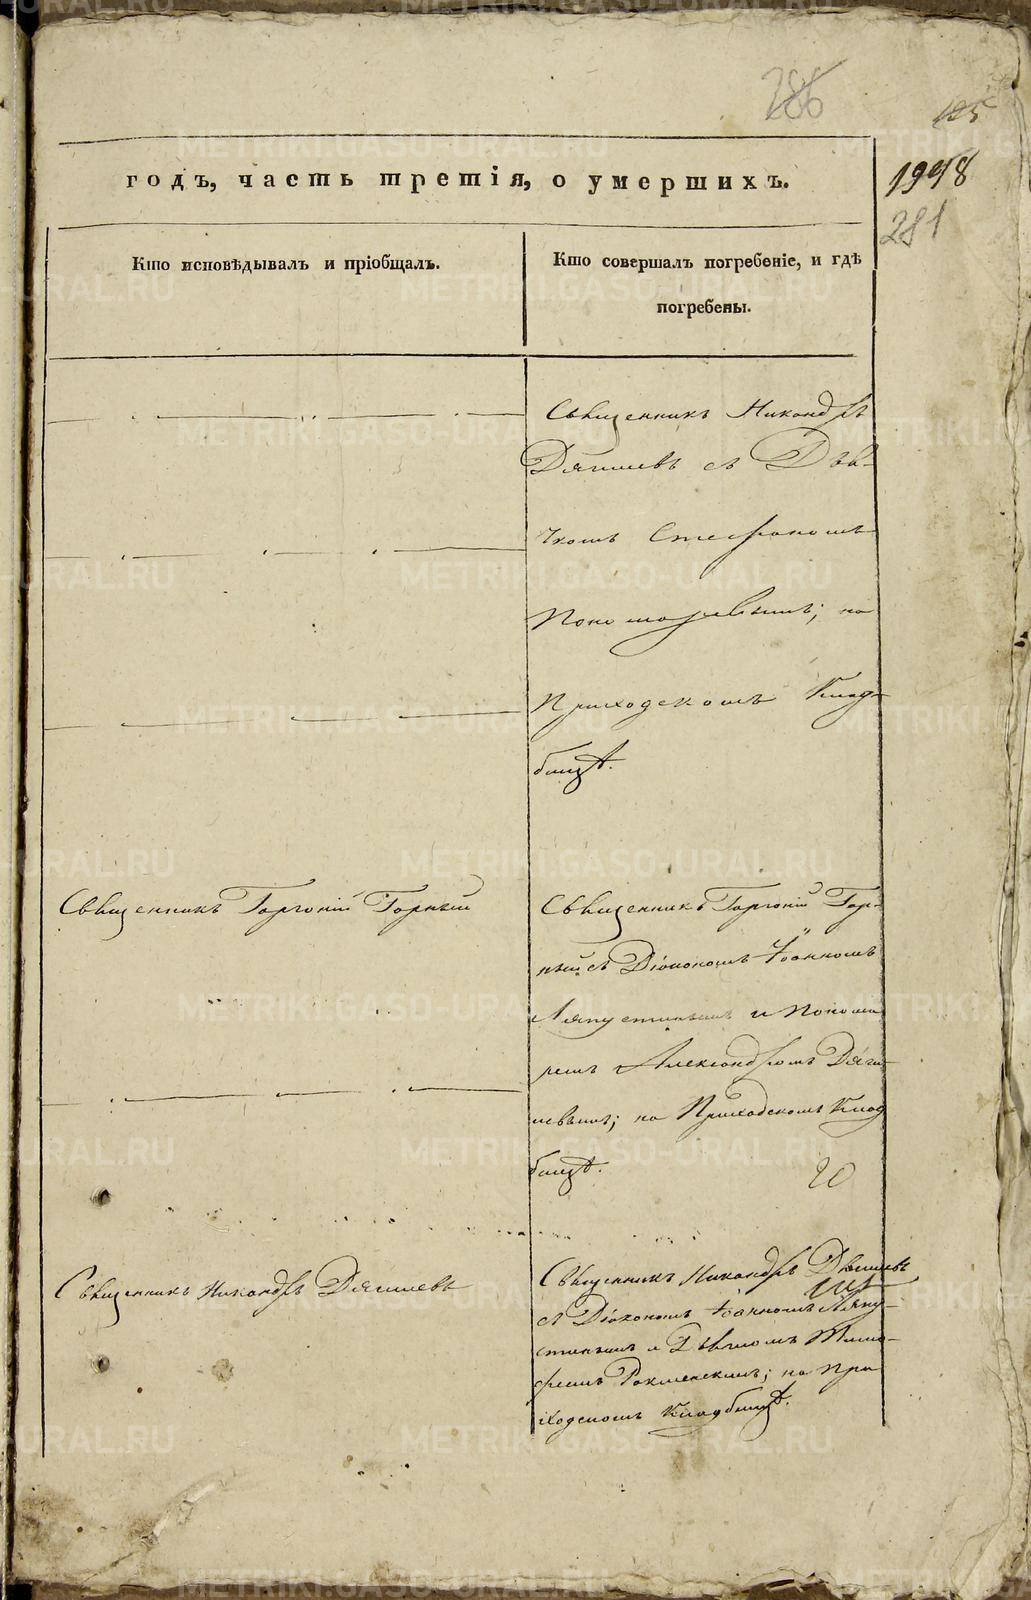 286
125
годъ, часть третія, о умершихъ.
1998
281
Кто исповѣдывалъ и пріобщалъ.
Кто совершалъ погребеніе, и гдѣ
погребены.
Священникъ Никандръ
Дягилевъ съ Дьяч-
комъ Стефаномъ
Пономаревымъ; на
Приходскомъ Клад-
бищѣ.
Священникъ Горгоній Горный
Священникъ Горгоній Гор-
ный съ Діакономъ Іоанномъ
Ляпустинымъ и Понома
ремъ Александромъ Дяги
левымъ; на Приходскомъ Клад
бищѣ.
20
Священникъ Никандръ Дягилевъ
Священникъ Никандръ
съ Діакономъ Іоанномъ Ляпу-
стинымъ и Дьячкомъ Тимо-
феемъ на При
ходскомъ Кладбищѣ.
METRIKI.GASO-URAL.RU